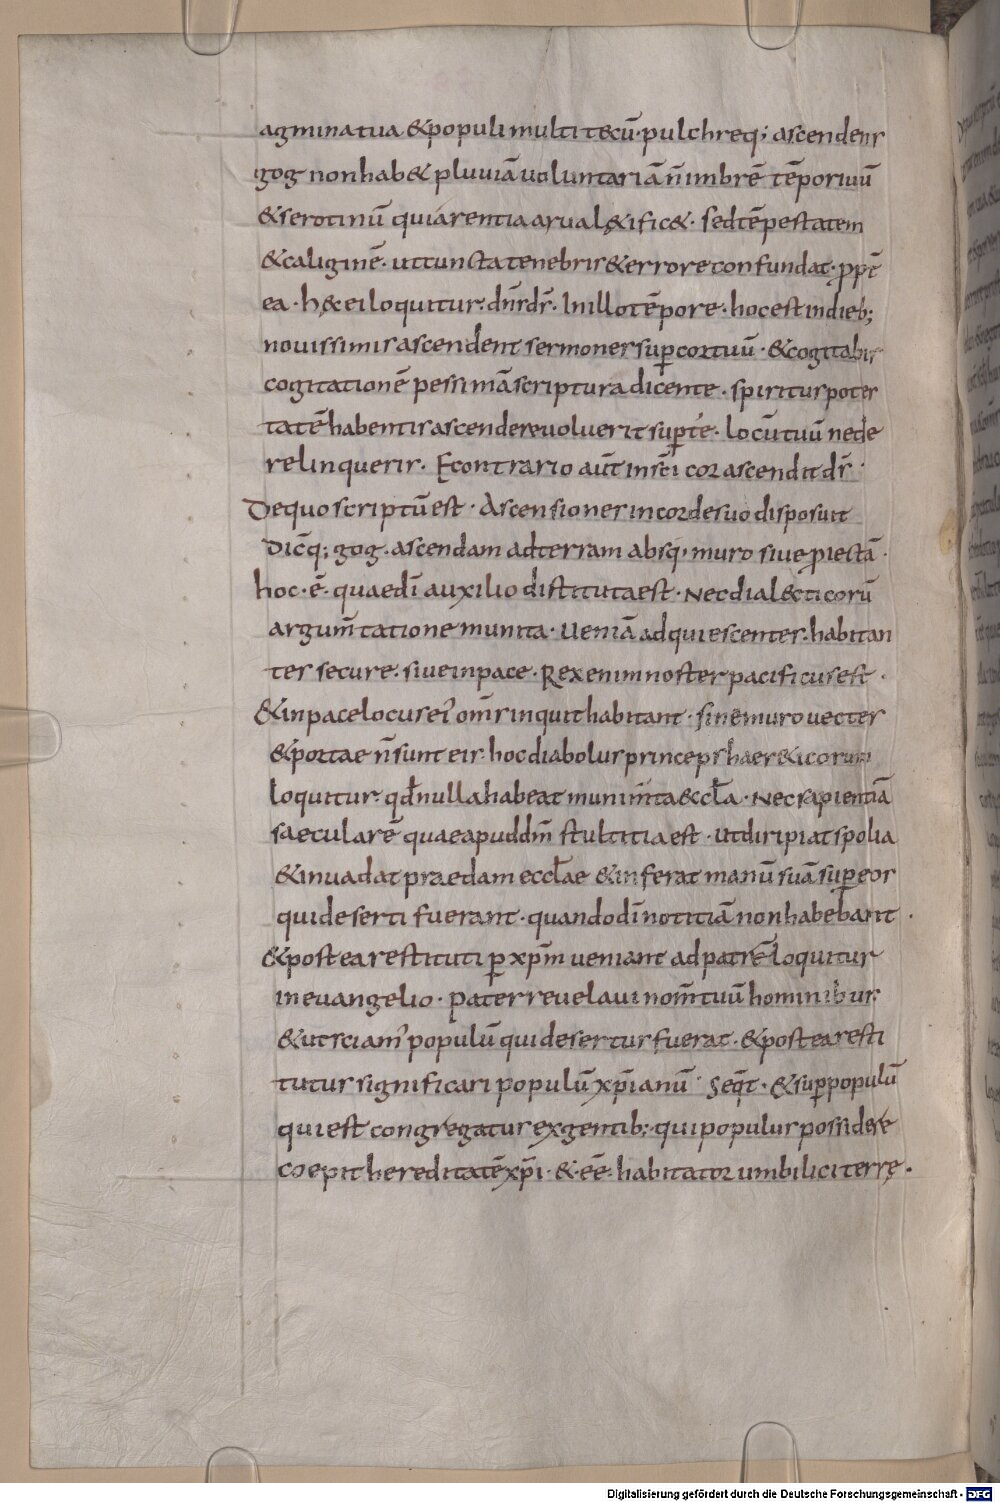 agmina tua & populi multi tecū· pulchreq; ascendens
gog non hab& pluviā voluntariā n̄ imbrē tēporivū
& serotinū qui arentia arva l&ific&· sed tēpestatem
& caliginē· ut cuncta tenebris & errore confundat· ppt̄
ea· h̨c ei loquitur· dn̄s ds̄· In illo tēpore· hoc est in dieb;
novissimis ascendent sermones sup̄ cor tuū· & cogitabis
cogitationē pessimā scriptura dicente· spiritus potes
tatē habentis ascendere voluerit sup̄ te· locū tuū ne de
relinqueris· E contrario aūt in sc̄i cor ascendit ds̄·
De quo scriptū est· Ascensiones in corde suo disposuit
Dic̄q; gog· ascendam ad terram absq; muro sive piectā·
hoc· ē· quae dī auxilio distituta est· Nec dial&ticorū
argum̄tatione munita· Veniā ad quiescentes· habitan
tes secure· sive in pace· Rex enim noster pacificus est·
& in pace locus ei' om̄s inquit habitant· sine muro vectes
& portae n̄ sunt eis· hoc diabolus princeps haer&icorum
loquitur· qd̄ nulla habeat munim̄ta eccl̄a· Nec sapientiā
saecularē quae apud dm̄ stultitia est· ut diripiat spolia
& invadat praedam eccl̄ae & inferat manū suā sup̄ eos
qui deserti fuerant· quando dī notitiā non habebant·
& postea restituti p̄ xp̄m veniant ad patrē loquitur
in evangelio· Pater revelavi nom̄ tuū hominibus·
& ut sciam' populū qui desertus fuerat· & postea resti
tutus significari populū xp̄ianū· Seq̄t· & sup̄ populū
qui est congregatus ex gentib;· qui populus possidere
coepit hereditatē xp̄i· & eē· habitator umbilici terrę·
Digitalisierung gefördert durch die Deutsche Forschungsgemeinschaft - DFG